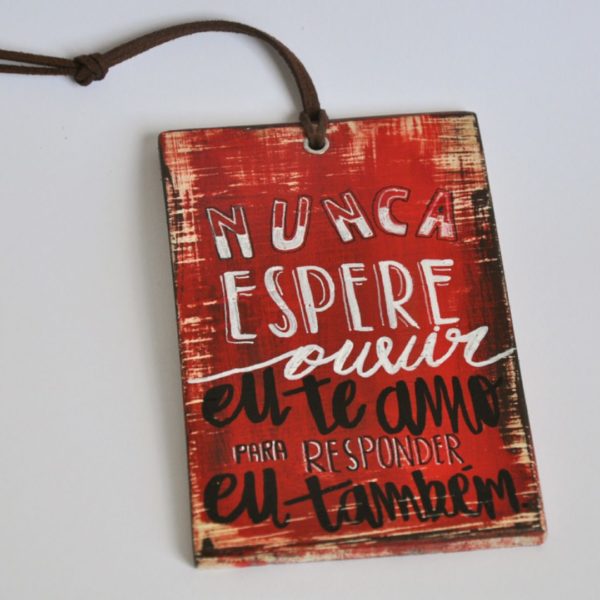 NUNCA
ESPERE
ouvir
eu te amo
PARA RESPONDER
eu também